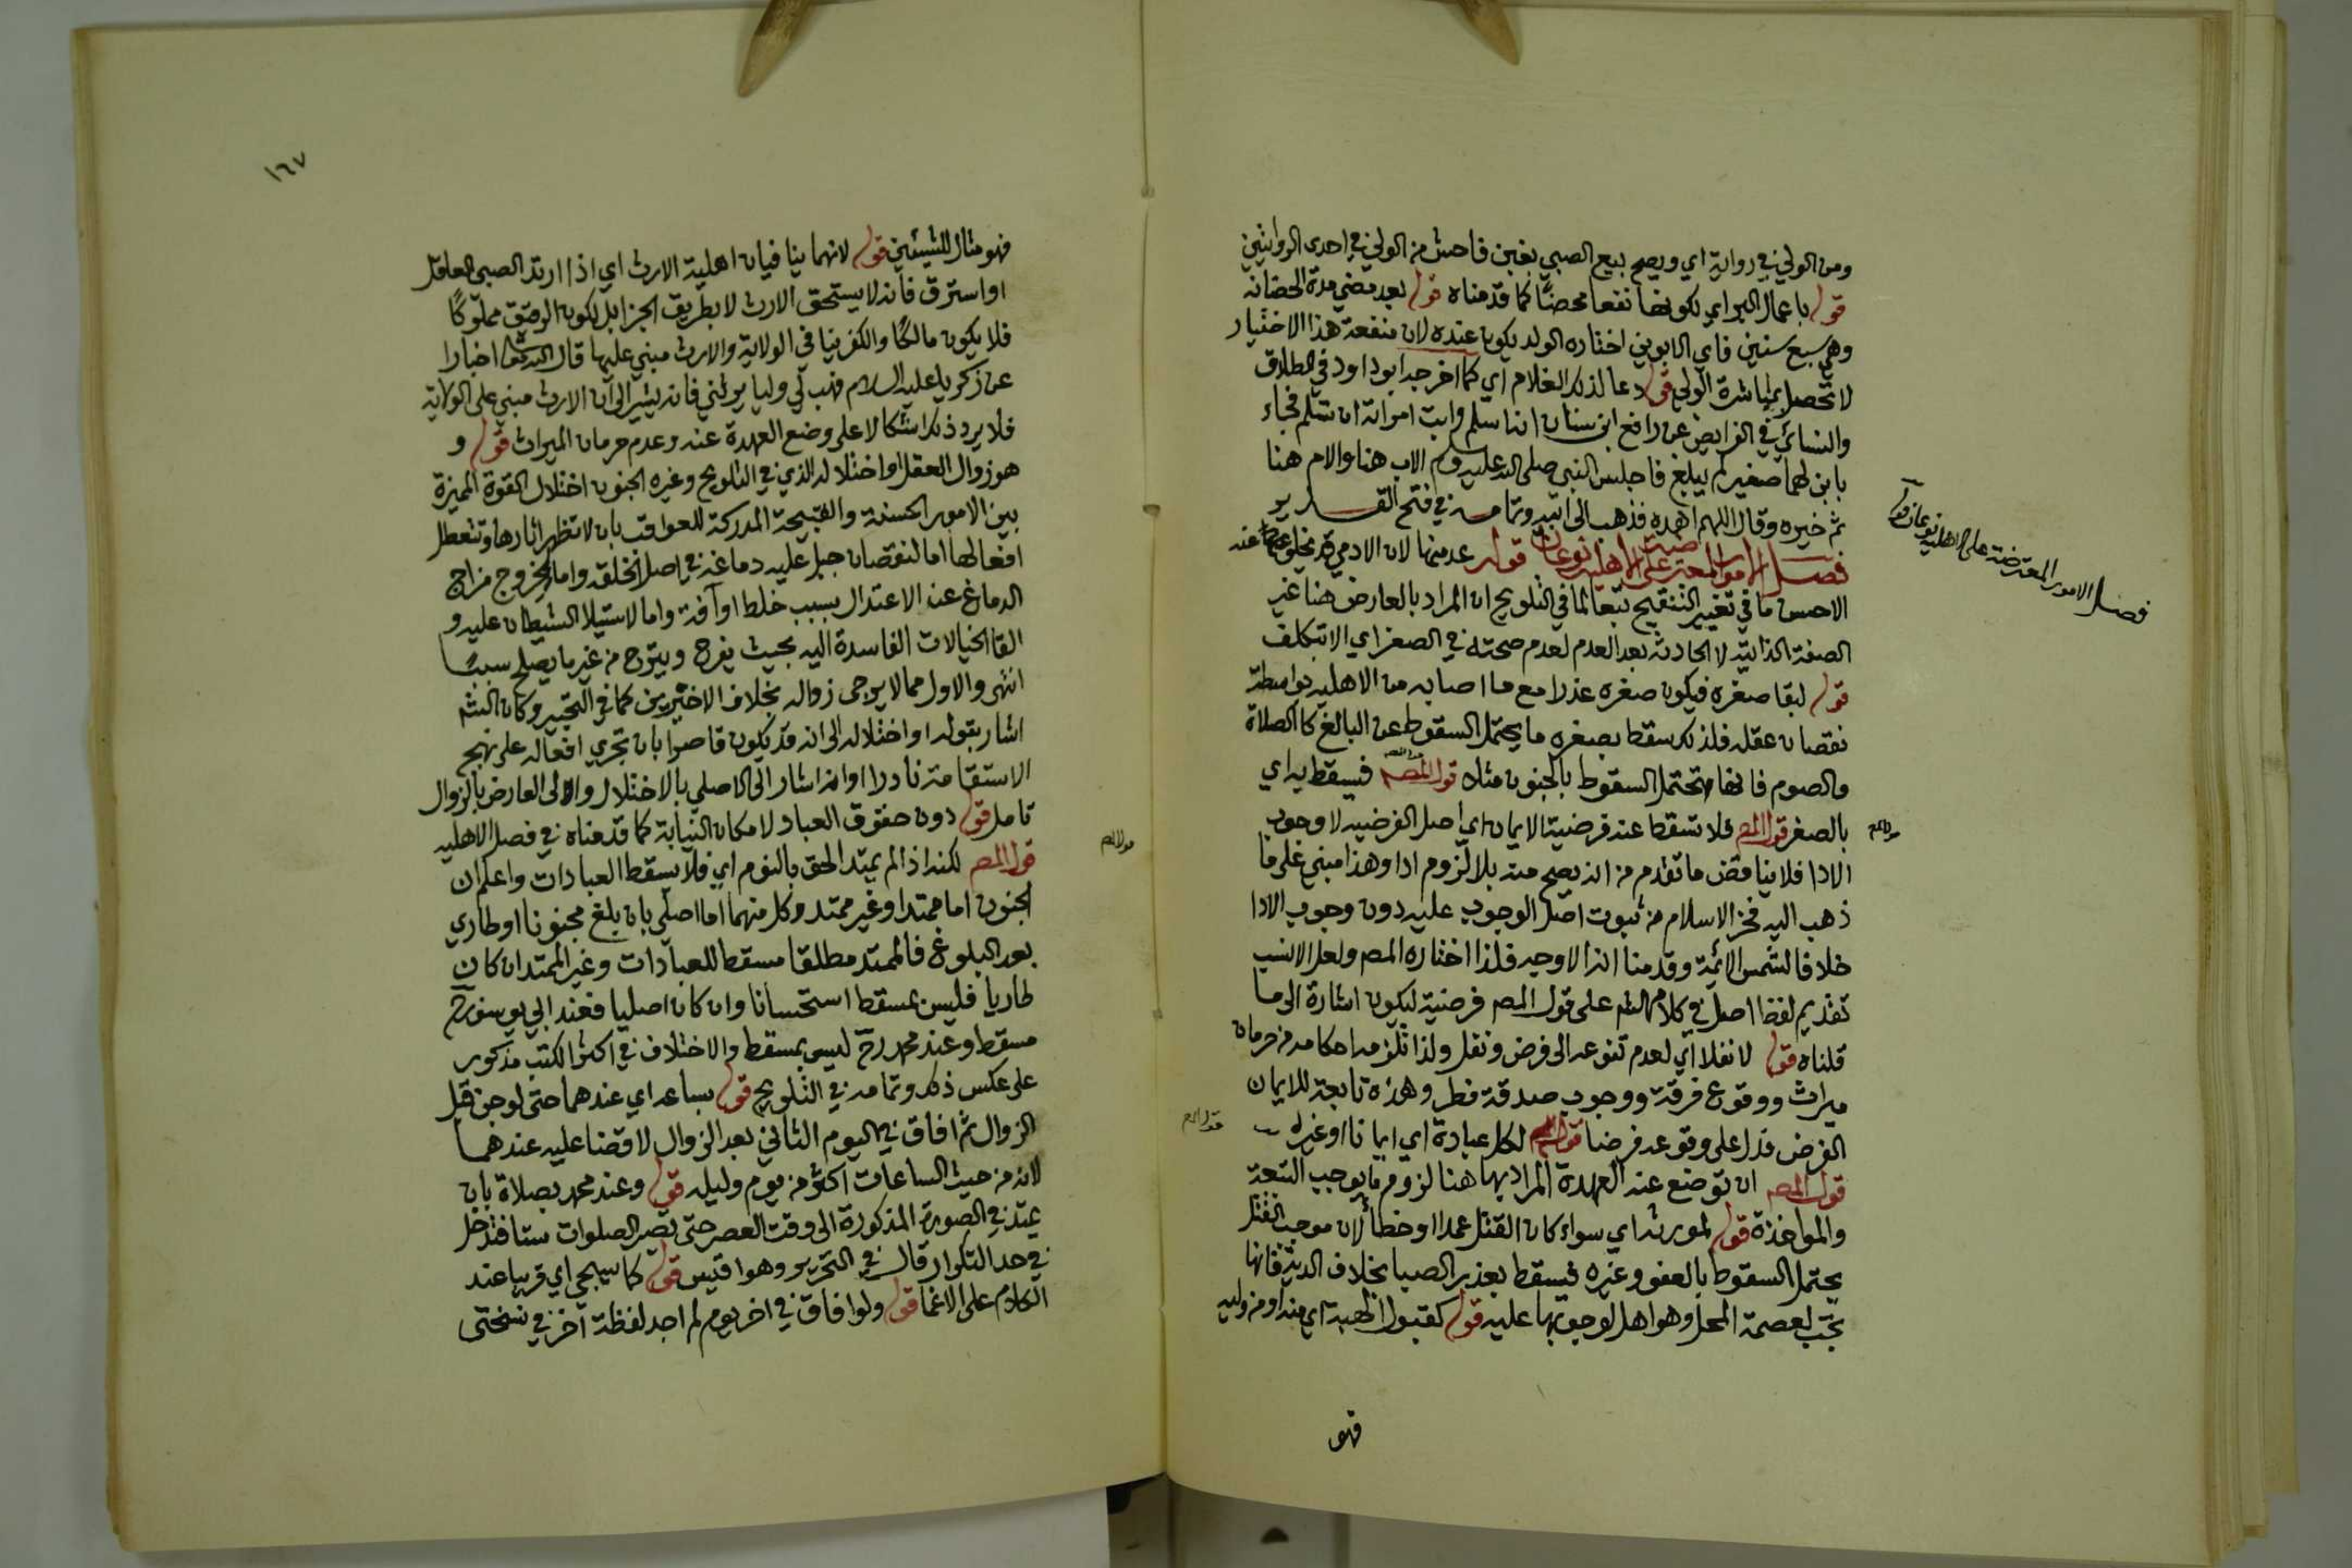 ومن الولي في رواية اي ويصح بيع الصبي بغبن فاحش من الولي في احدى الروايتين
قوله باعمال البر اي لكونها نفعا محضا كما قدمناه قوله بعد مضي مدة الحضانة
وهي سبع سنين فاي الابوين اختاره الولد يكون عنده لان منفعة هذا الاختيار
لا تحصل بمباشرة الولي قوله دعا لذلك الغلام اي كما اخرجه ابوداود في الطلاق
والنسائي في الفرايض عن رافع ابن سنان انه اسلم وابت امراته ان تسلم فجاء
بابن لهما صغير لم يبلغ فاجلس النبي صلى الله عليه وسلم الاب هنا والام هنا
ثم خيره وقال اللهم اهده فذهب الى ابيه وتمامه في فتح القدير
فصل الامور المعترضة على الاهلية نوعان قوله عدمنها لان الادمي قد يخلو عنه
الاحسن ما في تغيير التنقيح تبعا لما في التلويح ان المراد بالعارض هنا غير
الصفة الذاتية لا الحادثة بعد العدم لعدم صحته في الصغر اي الا بتكلف
قوله لبقا صغره فيكون صغره عذرا مع ما اصابه من الاهلية بواسطة
نقصان عقله فلذلك سقط بصغره ما يحتمل السقوط عن البالغ كالصلاة
والصوم فانها تحتمل السقوط بالجنون مثلا قول المص فيسقط به اي
بالصغر قول المص فلا تسقط عنه فرضية الايمان اي اصل الفرضية لا وجوب
الادا فلا يناقض ما تقدم من انه يصح منه بلا لزوم ادا وهذا مبني على ما
ذهب اليه فخر الاسلام من ثبوت اصل الوجوب عليه دون وجوب الادا
خلافا لشمس الائمة وقدمنا انه الاوجه فلذا اختاره المص ولعل الانسب
تقديم لفظ اصل في كلام الشم على قول المص فرضية ليكون اشارة الى ما
قلناه قوله لا نفلا اي لعدم تنوعه الى فرض ونفل ولذا تلزمه احكامه من حرمان
ميراث ووقوع فرقة ووجوب صدقة فطر وهذه تابعة للايمان
الفرض فدل على وقوعه فرضا قول المص لكل عبادة اي ايمانا او غيره
قول المص ان توضع عنه العهدة المراد بها هنا لزوم ما يوجب التبعة
والمواخذة قوله لمورثه اي سواء كان القتل عمدا او خطأ لان موجب القتل
يحتمل السقوط بالعفو وغيره فيسقط بعذر الصبا بخلاف الدية فانها
تجب لعصمة المحل وهو اهل لوجوبها عليه قوله كقبول الهبة اي منه او من وليه
فهو
فصل الامور المعترضة على الاهلية نوعان قوله
قول المص
قول المص
١٦٧
فهو مثال للشيئين قوله لانهما ينافيان اهلية الارث اي اذا ارتد الصبي العاقل
او استرق فانه لا يستحق الارث لا بطريق الجزا بل لكون الرقيق مملوكا
فلا يكون مالكا والكفر ينافي الولاية والارث مبني عليها قال الله تعالى اخبارا
عن زكريا عليه السلام فهب لي وليا يرثني فانه يشير الى ان الارث مبني على الولاية
فلا يرد ذلك اشكالا على وضع العهدة عنه وعدم حرمان الميراث قوله و
هو زوال العقل او اختلاله الذي في التلويح وغيره الجنون اختلال القوة المميزة
بين الامور الحسنة والقبيحة المدركة للعواقب بان لا تظهر اثارها وتتعطل
افعالها اما لنقصان جبل عليه دماغه في اصل الخلقة واما لخروج مزاج
الدماغ عن الاعتدال بسبب خلط او آفة واما لاستيلا الشيطان عليه و
القا الخيالات الفاسدة اليه بحيث يفرح ويتروح من غير ما يصلح سببا
انتهى والاول مما لا يرجى زواله بخلاف الاخيرين كما في التحبير وكان الشم
اشار بقوله او اختلاله الى انه قد يكون قاصرا بان تجري افعاله على نهج
الاستقامة نادرا او انه اشار الى الاصلي بالاختلال والى العارض بالزوال
تامل قوله دون حقوق العباد لامكان النيابة كما قدمناه في فصل الاهلية
قول المص لكنه اذا لم يمتد الحق بالنوم اي فلا يسقط العبادات واعلم ان
الجنون اما ممتد او غير ممتد وكل منهما اما اصلي بان بلغ مجنونا او طاري
بعد البلوغ فالممتد مطلقا مسقط للعبادات وغير الممتد ان كان
طاريا فليس بمسقط استحسانا وان كان اصليا فعند ابي يوسف رح
مسقط وعند محمد رح ليس بمسقط والاختلاف في اكثر الكتب مذكور
على عكس ذلك وتمامه في التلويح قوله بساعة اي عندهما حتى لو جن قبل
الزوال ثم افاق في اليوم الثاني بعد الزوال لا قضا عليه عندهما
لانه من حيث الساعات اكثر من يوم وليلة قوله وعند محمد بصلاة بان
يمتد في الصورة المذكورة الى وقت العصر حتى تصير الصلوات ستا فتدخل
في حد التكرار قال في التحرير وهو اقيس قوله كما سيجي اي قريبا عند
الكلام على الاغما قوله ولو افاق في اخر يوم لم اجد لفظة آخر في نسختي
قول المص